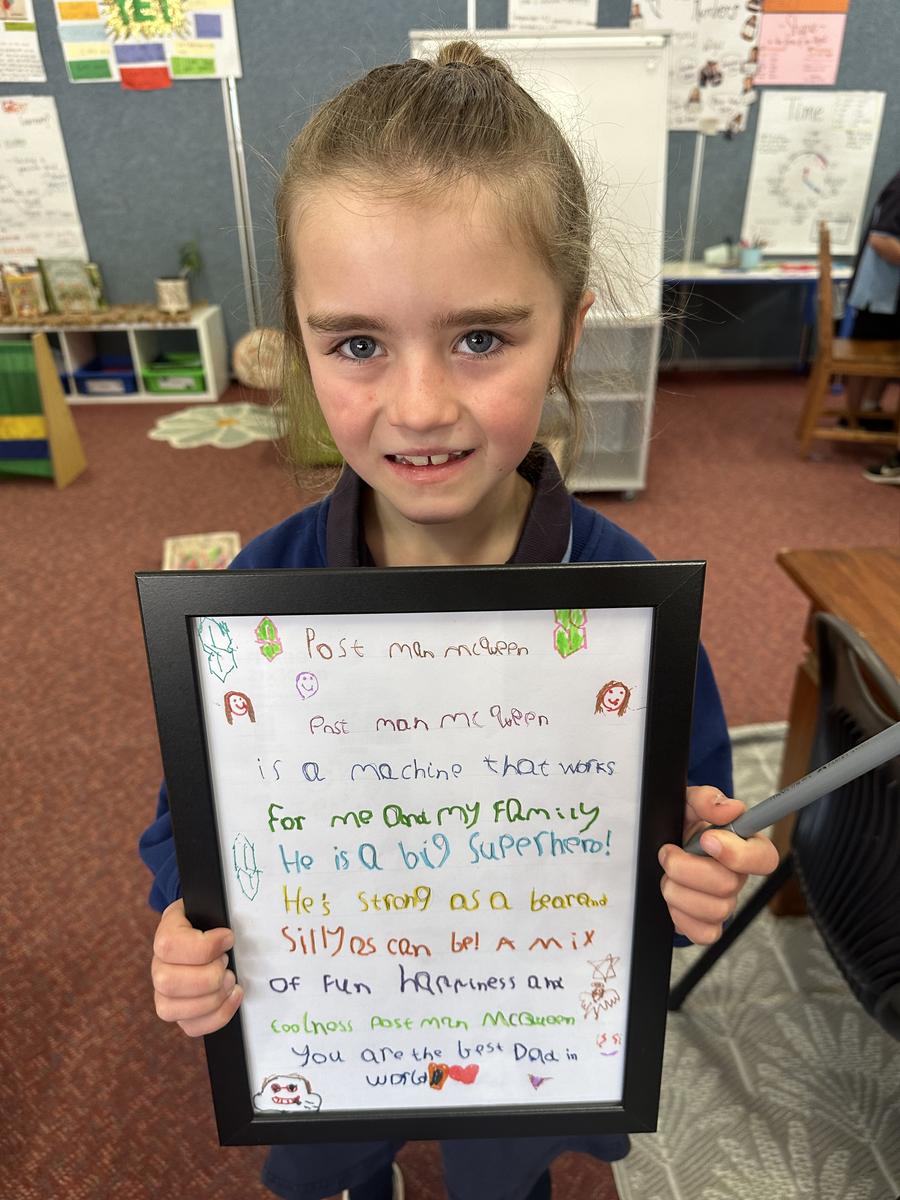 YET
Time
Post man mcQueen
Post man Mc Queen
is a machine that works
for me and my FAmily
He is a big Superhero!
He's strong as a bear and
Silly as can be! A mix
of Fun happiness and
coolness Post man McQueen
You are the best Dad in
world